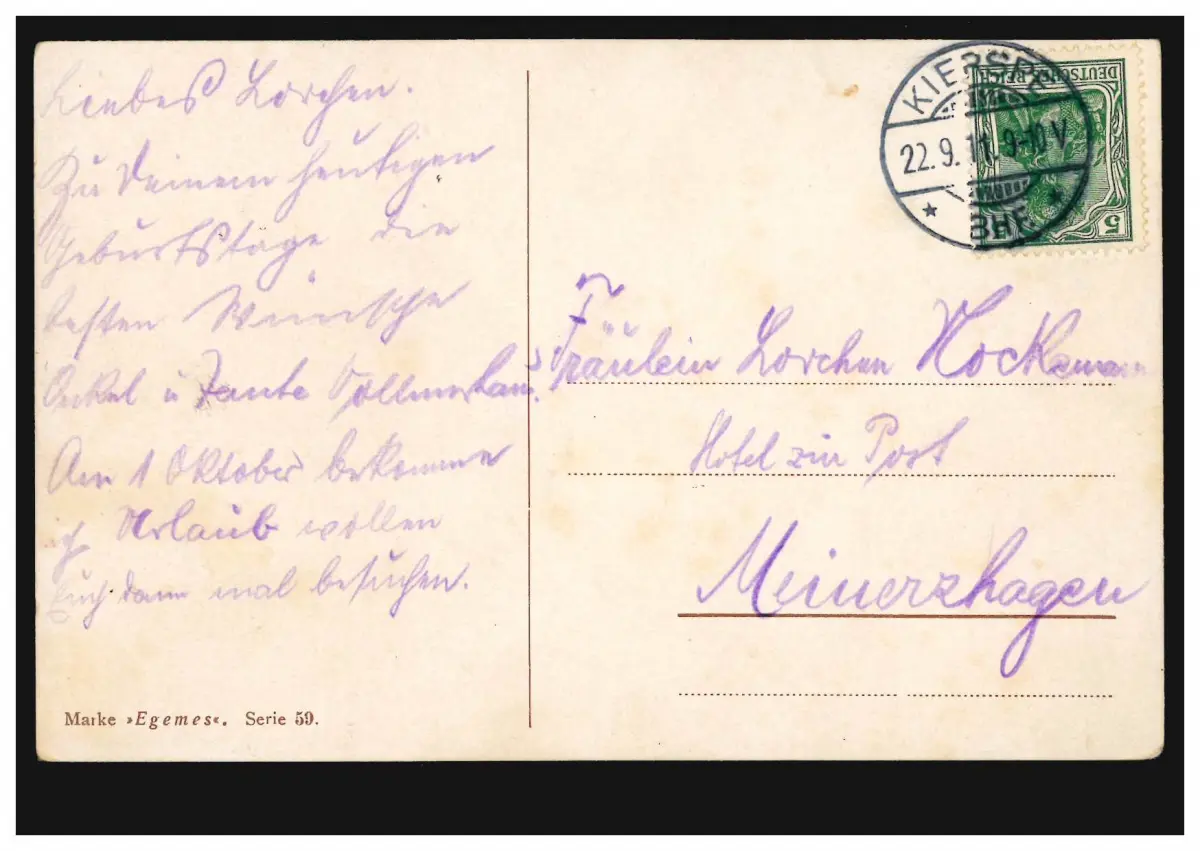 Liebes Lorchen.
Zu Deinem heutigen
Geburtstage die
besten Wünsche
Onkel u Tante
Am 1 Oktober bekomme
ich Urlaub wollen
Euch dann mal besuchen.
Marke »Egemes«. Serie 59.
KIERSPE
22.9.11. 9-10 V
BHF
DEUTSCHES REICH
5
Fräulein Lorchen Hockemann
Hotel zur Post
Meinerzhagen